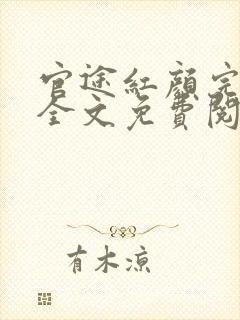 官途红颜完
全文免費閱
有木凉